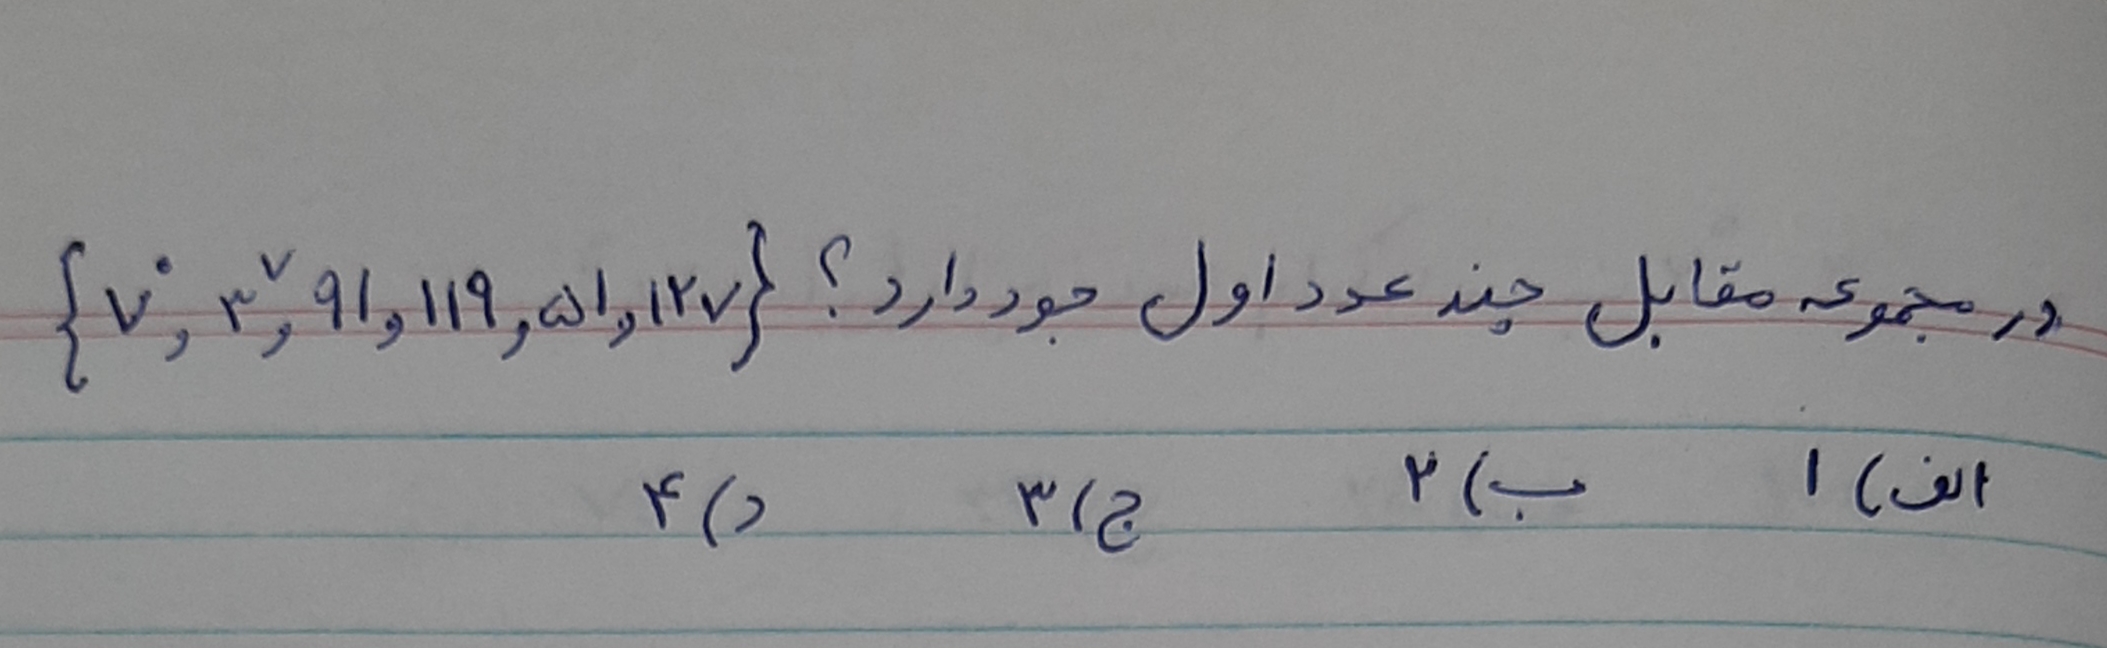 در مجموعه مقابل چند عدد اول جود دارد؟ {۷۰, ۳۷, ۹۱, ۱۱۹, ۵۱, ۱۲۷}
الف) ۱ ب) ۲ ج) ۳ د) ۴